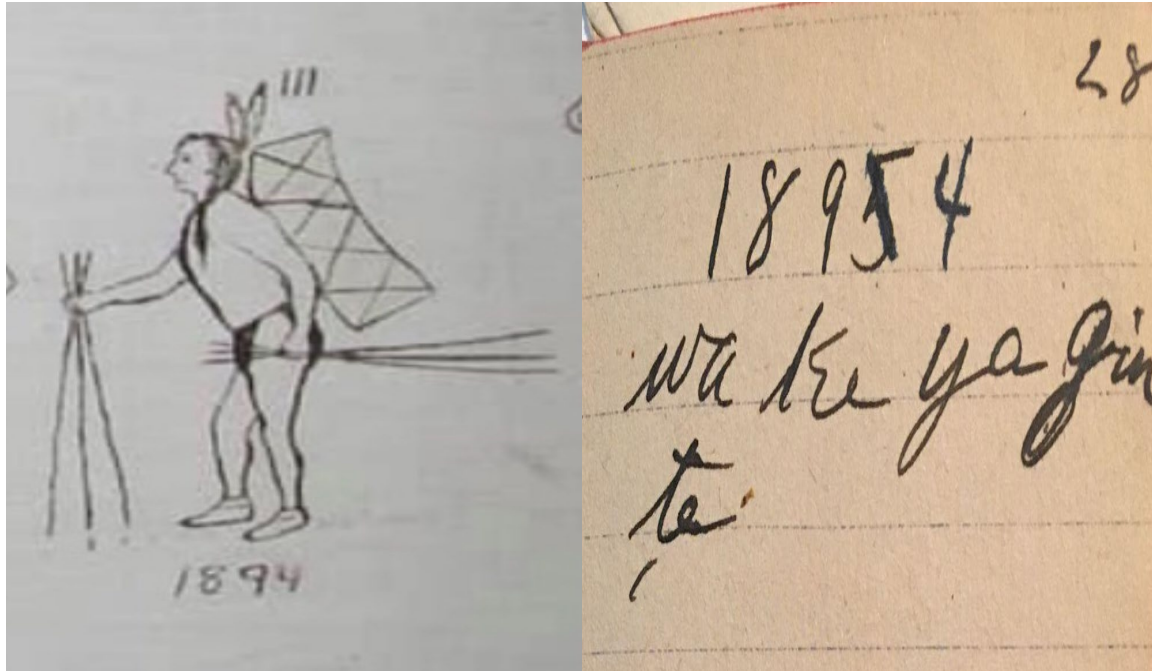 1894
28
18954
wa ke ya gin
te